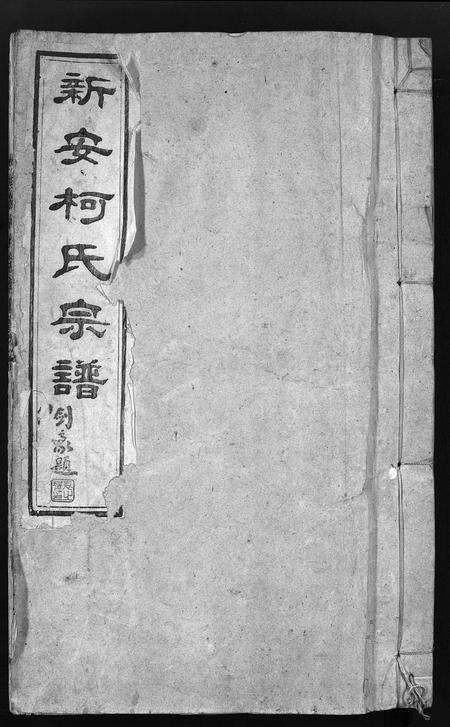 新安柯氏宗譜
劍豪題